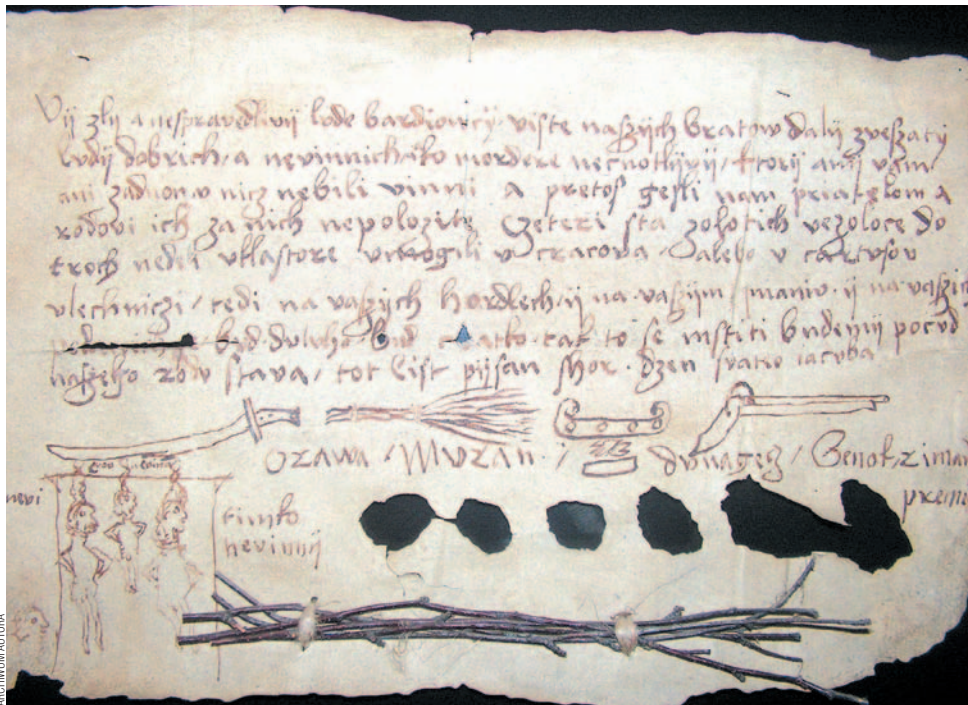 Vij zlij a nespravedlivij lude bardiowcij, viste naszijch bratow dalij zveszatij
ludij dobrich, a nevinnich, iko mordere necnotlijvij, ktorij anij vam
ani zadnomu nicz nebili vinni a pretoż gestli nam priatelom a
rodovi ich za nich nepolozite czteri sta zolotich vezoloce do
troch nedeli vklastore vmogili v cracova, albo v cartusov
vlechniczi, tedi na vaszijch hordlech, ij na vaszijm imaniv, ij na vaszich
bud duluho bud cratko tak to se mstiti budemij pocud
naszeho rodu stava, tot list pijsan shor. dzen svateo iacuba
ORAWA, MURAN, dunagez, Senok, zimai
nevi
timko
nevinnij
preme
ARCHIWUM AUTORA